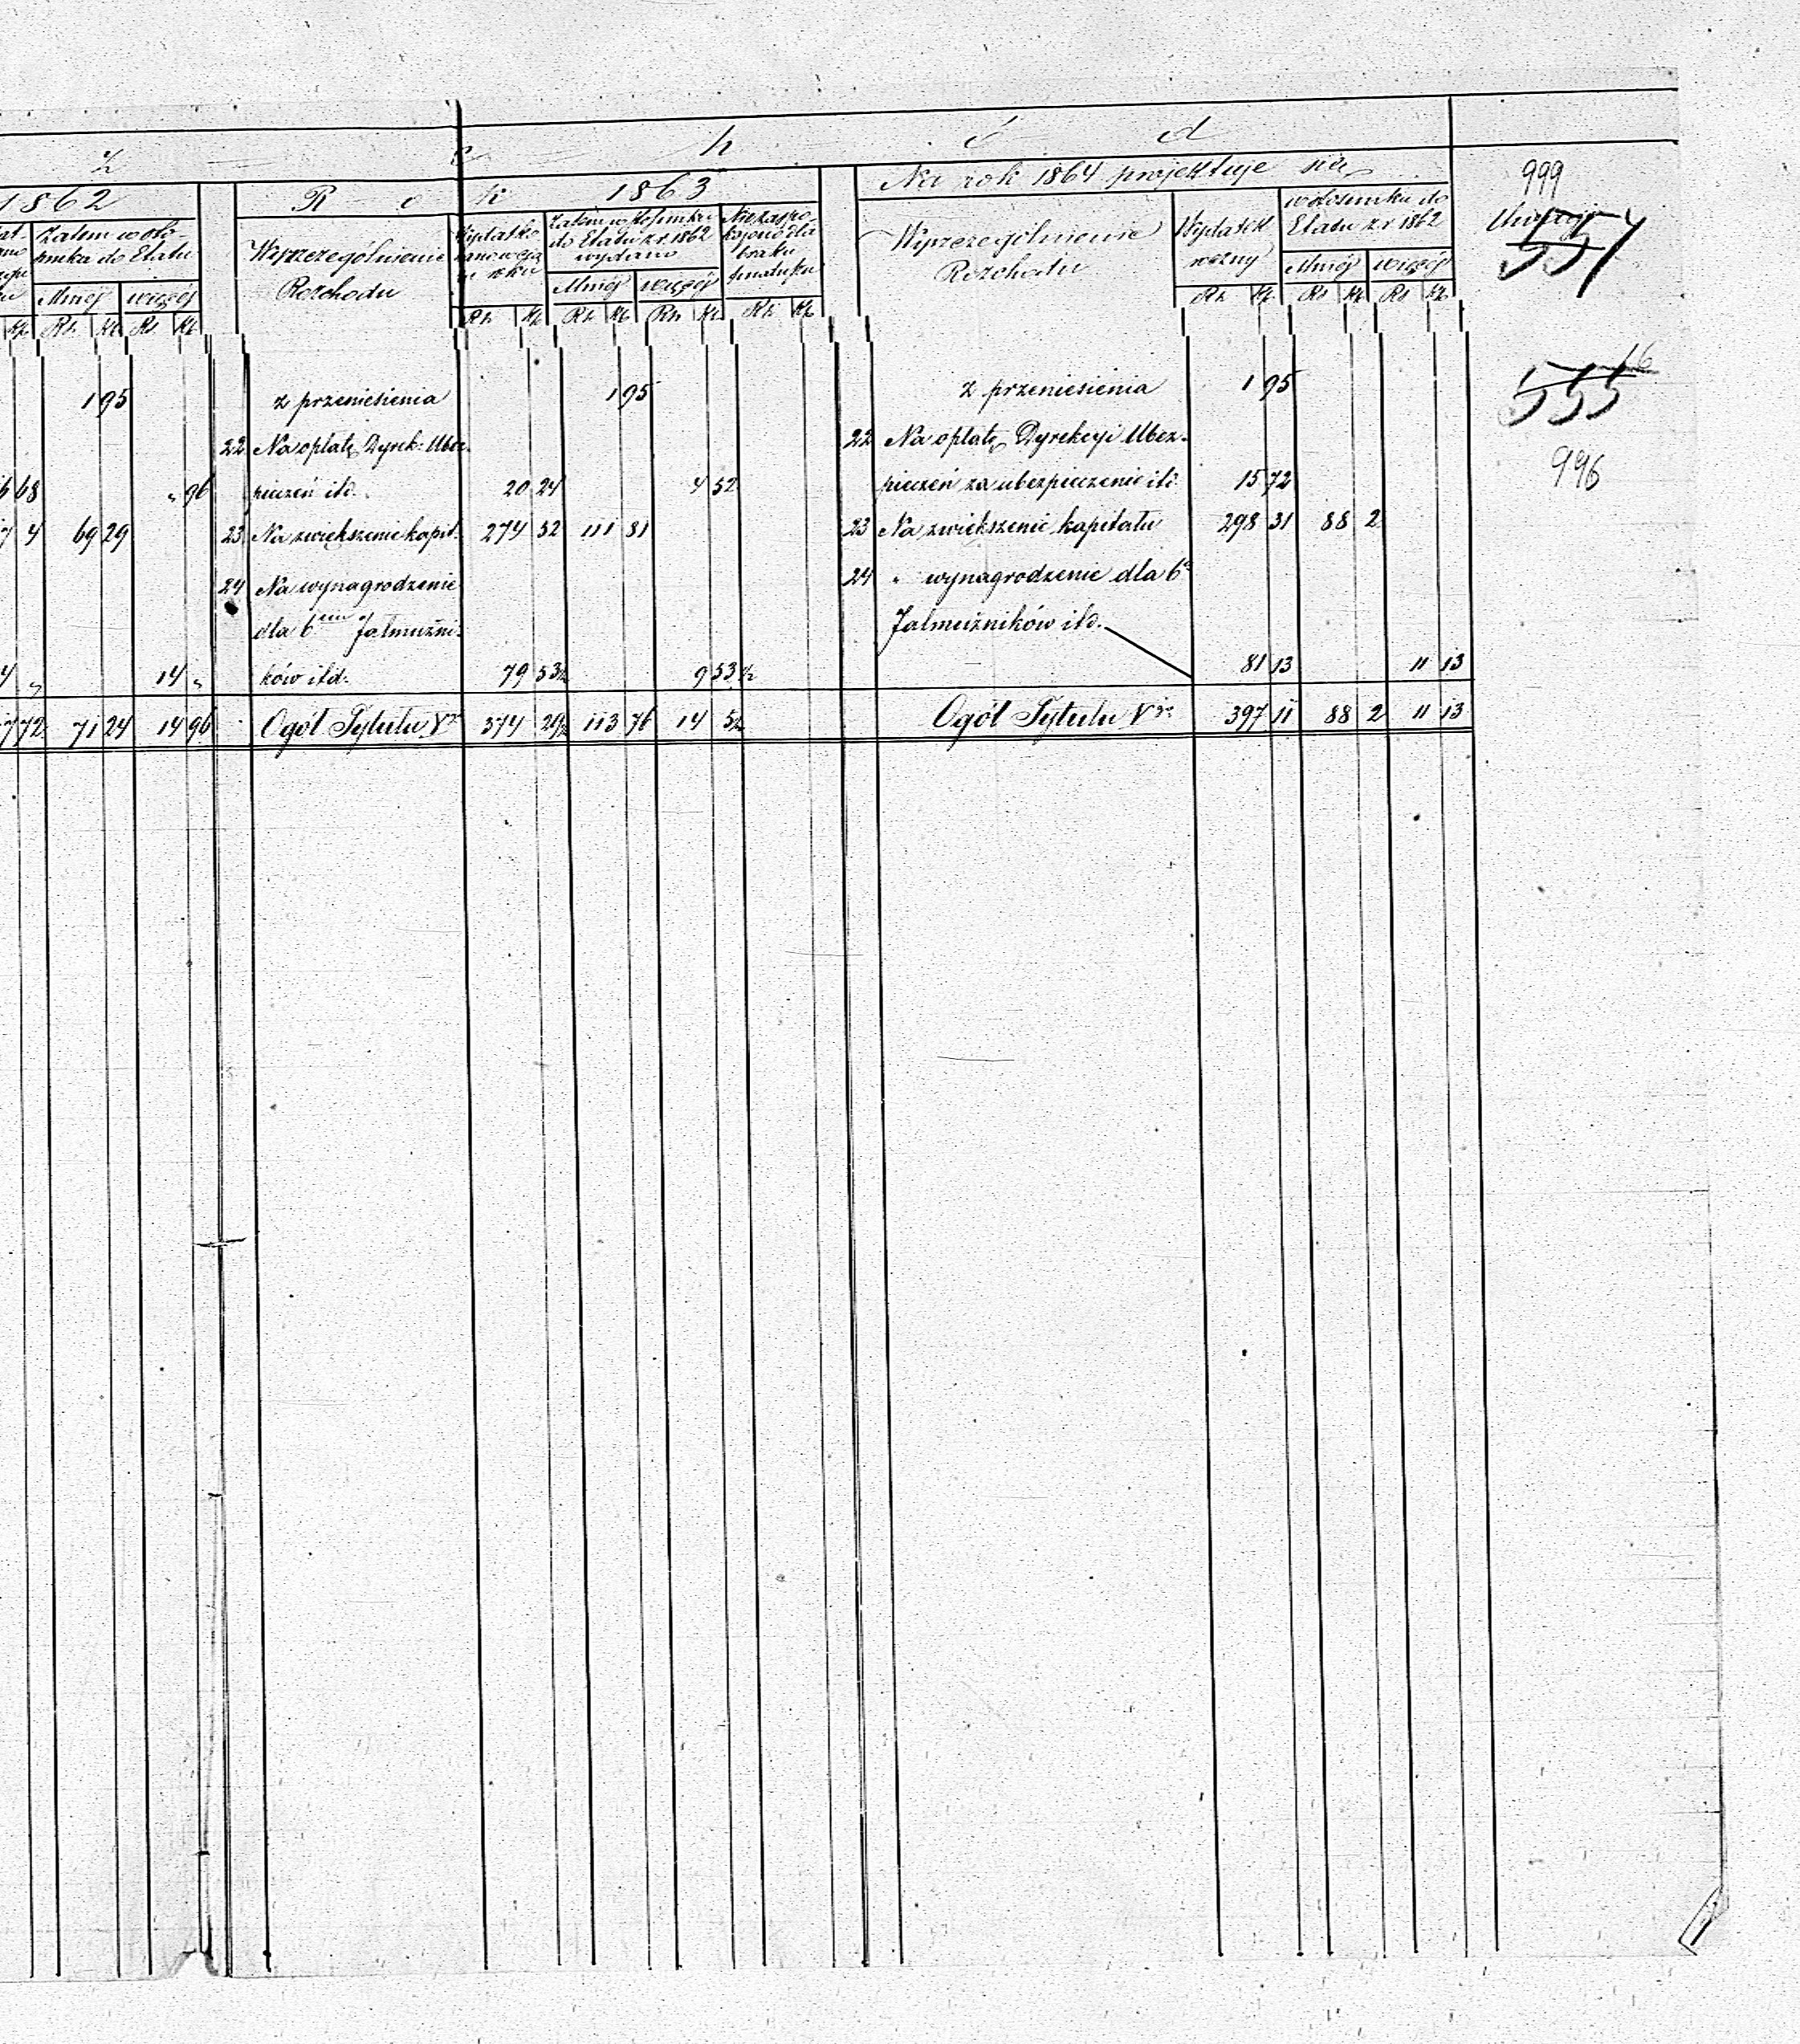 z c h ó d
1862
R o k 1863
Na rok 1864 projektuje się
999
Zatem w stosunku do Etatu
Wyszczególnienie Rozchodu
Zatem w stosunku do Etatu z r. 1862 wydano
Niezaspokojono dla braku funduszu
Wyszczególnienie Rozchodu
Wydatek roczny
w stosunku do Etatu z r. 1862
Uwagi
557
Mniej więcej
Mniej więcej
Mniej więcej
Kp Rs. Kp Rs. Kp
Rs. Kp Rs. Kp Rs. Kp Rs. Kp
Rs. Kp Rs. Kp Rs. Kp
555 16
1 95 z przeniesienia 1 95 z przeniesienia 1 95
22 Na opłatę Dyrek. Ubez- 22 Na opłatę Dyrekcyi Ubez-
996
68 " 96 pieczeń itd. 20 24 4 52 pieczeń za ubezpieczenie itd. 15 72
4 69 29 23 Na zwiększenie kapit. 274 52 111 81 23 Na zwiększenie kapitału 298 31 88 2
24 Na wynagrodzenie 24 " wynagrodzenie dla 6ciu
dla 6ciu Jałmużni- Jałmużników itd.
4 " 14 " ków itd. 79 53½ 9 53½ 81 13 11 13
72 71 24 14 96 Ogół Tytułu Vgo 374 29½ 113 76 14 5½ Ogół Tytułu Vgo 397 11 88 2 11 13